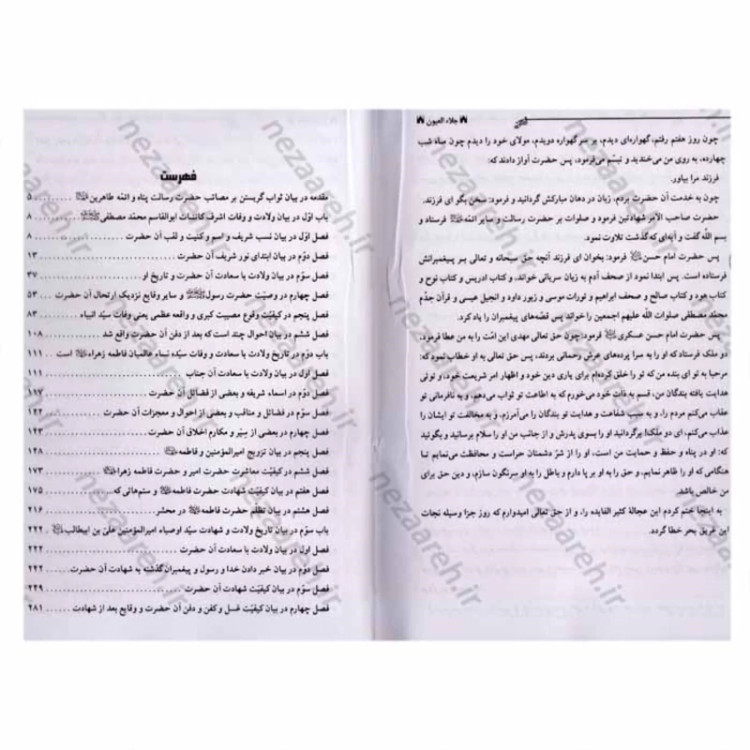 جلاء العیون
چون روز هفتم رفتم، گهواره‌ای دیدم، بر سر گهواره دویدم، مولای خود را دیدم چون ماه شب
چهارده، به روی من می‌خندید و تبسّم می‌فرمود، پس حضرت آواز دادند که:
فرزند مرا بیاور.
چون به خدمت آن حضرت بردم، زبان در دهان مبارکش گردانید و فرمود: سخن بگو ای فرزند.
حضرت صاحب الامر شهادتین فرمود و صلوات بر حضرت رسالت و سایر ائمّه فرستاد و
بسم اللّه گفت و آیه‌ای که گذشت تلاوت نمود.
پس حضرت امام حسن فرمود: بخوان ای فرزند آنچه حق سبحانه و تعالی بر پیغمبرانش
فرستاده است. پس ابتدا نمود از صحف آدم به زبان سریانی خواند، و کتاب ادریس و کتاب نوح و
کتاب هود و کتاب صالح و صحف ابراهیم و تورات موسی و زبور داود و انجیل عیسی و قرآن جدّم
محمّد مصطفی صلوات اللّه علیهم اجمعین را خواند پس قصّه‌های پیغمبران را یاد کرد.
پس حضرت امام حسن عسکری فرمود: چون حق تعالی مهدی این امّت را به من عطا فرمود،
دو ملک فرستاد که او را به سرا پرده‌های عرش رحمانی بردند، پس حق تعالی به او خطاب نمود که:
مرحبا به تو ای بنده من که تو را خلق کرده‌ام برای یاری دین خود و اظهار امر شریعت خود، و توئی
هدایت یافته بندگان من، قسم به ذات خود می‌خورم که به اطاعت تو ثواب می‌دهم، و به نافرمانی تو
عقاب می‌کنم مردم را، و به سبب شفاعت و هدایت تو بندگان را می‌آمرزم، و به مخالفت تو ایشان را
عذاب می‌کنم، ای دو ملک! برگردانید او را بسوی پدرش و از جانب من او را سلام برسانید و بگوئید
که: او در پناه و حفظ و حمایت من است، او را از شرّ دشمنان حراست و محافظت می‌نمایم تا
هنگامی که او را ظاهر نمایم، و حق را به او بر پا دارم و باطل را به او سرنگون سازم، و دین حق برای
من خالص باشد.
به اینجا ختم کردم این عجالهٔ کثیر الفایده را، و از حق تعالی امیدوارم که روز جزا وسیله نجات
این غریق بحر خطا گردد.
فهرست
مقدمه در بیان ثواب گریستن بر مصائب حضرت رسالت پناه و ائمّه طاهرین ۵
باب اوّل در بیان ولادت و وفات اشرف کائنات ابوالقاسم محمّد مصطفی ۸
فصل اوّل در بیان نسب شریف و اسم و کنیت و لقب آن حضرت ۸
فصل دوّم در بیان ابتدای نور شریف آن حضرت ۱۳
فصل سوّم در بیان ولادت با سعادت آن حضرت و تاریخ او ۳۷
فصل چهارم در وصیّت حضرت رسول و سایر وقایع نزدیک ارتحال آن حضرت ۵۳
فصل پنجم در کیفیّت وقوع مصیبت کبری و واقعه عظمی یعنی وفات سیّد انبیاء ۸۳
فصل ششم در بیان احوال چند است که بعد از دفن آن حضرت واقع شد ۱۰۸
باب دوّم در تاریخ ولادت با سعادت و وفات سیّده نساء عالمیان فاطمه زهراء است ۱۱۱
فصل اول در بیان ولادت با سعادت آن جناب ۱۱۱
فصل دوّم در اسماء شریفه و بعضی از فضائل آن حضرت ۱۱۷
فصل سوّم در فضائل و مناقب و بعضی از احوال و معجزات آن حضرت ۱۲۲
فصل چهارم در بعضی از سِیَر و مکارم اخلاق آن حضرت ۱۲۳
فصل پنجم در بیان تزویج امیرالمؤمنین و فاطمه ۱۲۸
فصل ششم در کیفیّت معاشرت حضرت امیر و حضرت فاطمه زهرا ۱۷۳
فصل هفتم در بیان کیفیّت شهادت حضرت فاطمه و ستم‌هائی که ۱۷۵
فصل هشتم در بیان تظلّم حضرت فاطمه در محشر ۲۱۶
باب سوّم در بیان تاریخ ولادت و شهادت سیّد اوصیاء امیرالمؤمنین علی بن ابیطالب ۲۲۲
فصل اوّل در بیان ولادت با سعادت آن حضرت ۲۲۲
فصل دوم در بیان خبر دادن خدا و رسول و پیغمبران گذشته به شهادت آن حضرت ۲۴۲
فصل سوّم در بیان کیفیّت شهادت آن حضرت ۲۴۹
فصل چهارم در بیان کیفیّت غسل و کفن و دفن آن حضرت و وقایع بعد از شهادت ۲۸۱
nezaareh.ir